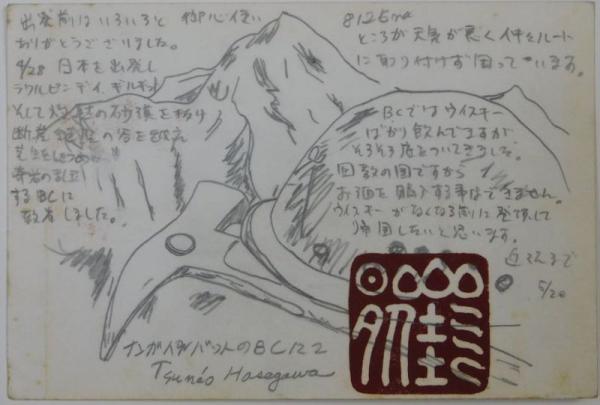 出発前はいろいろと 御心使い
ありがとうございました。
4/28 日本を出発し
ラワルピンディ、ギルギット
そして灼熱の砂漠を
断崖絶壁の谷を越え
するBCに
到着しました。
8125m
ところが天気が悪く 仲々ルート
に取り付けず困っています。
BCではウイスキー
ばかり飲んでますが
そろそろ底をついてきました。
回教の国ですから
お酒を購入する事はできません。
ウイスキーがなくなる前に登頂して
帰国したいと思います。
5/20
ナンガパルバットのBCにて
Tsuneo Hasegawa